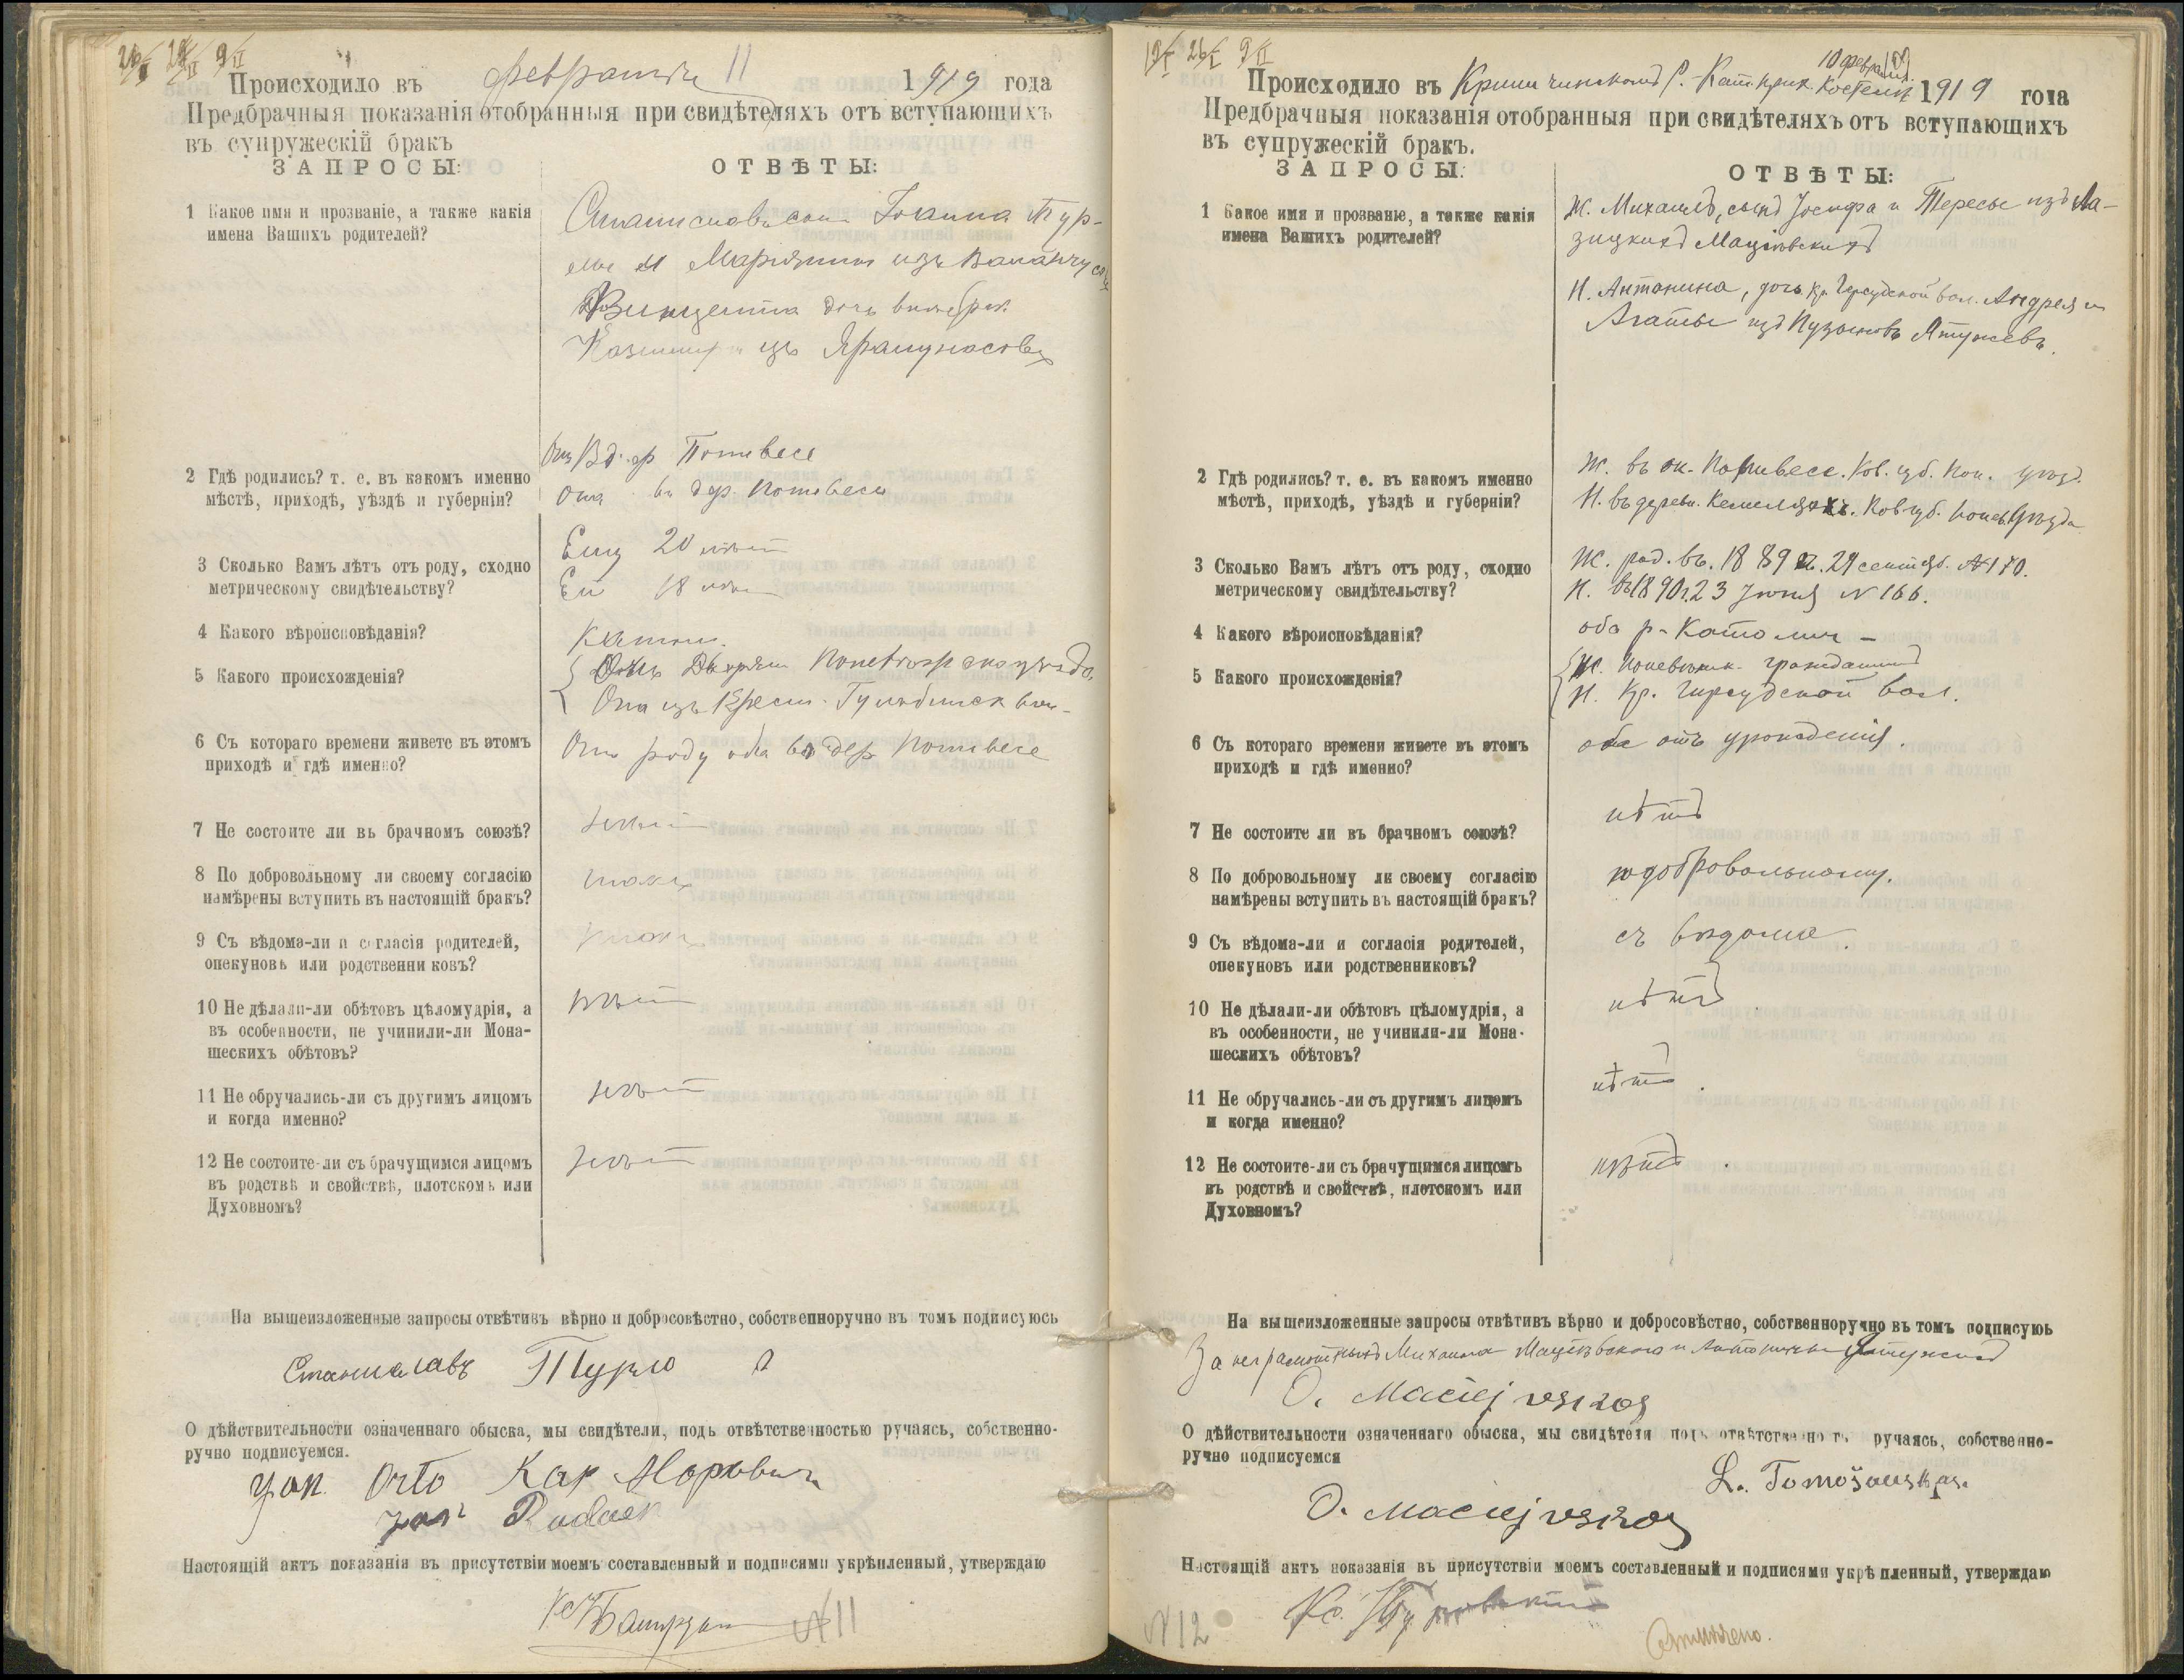 26/I 2/II 9/II
Происходило въ февраля 11 1919 года
Предбрачныя показанія отобранныя при свидѣтеляхъ отъ вступающихъ
въ супружескій бракъ
ЗАПРОСЫ: ОТВѢТЫ:
1 Какое имя и прозваніе, а также какія
имена Вашихъ родителей?
Станиславъ сын Іоанна Тур-
ле и Маріянны изъ
Винцента дочь
Казимир изъ
2 Гдѣ родились? т. е. въ какомъ именно
мѣстѣ, приходѣ, уѣздѣ и губерніи?
Онъ В д-ер Потивесе
Она въ дер. Потивесе
3 Сколько Вамъ лѣтъ отъ роду, сходно
метрическому свидѣтельству?
Ему 20 лѣт
Ей 18 лѣт
4 Какого вѣроисповѣданія?
Катол.
5 Какого происхожденія?
Онъ Дворян Поневѣж уѣзда
Она изъ Крест. вол-
6 Съ котораго времени живете въ этомъ
приходѣ и гдѣ именно?
От роду оба въ дер Потивесе
7 Не состоите ли въ брачномъ союзѣ?
нѣт
8 По добровольному ли своему согласію
намѣрены вступить въ настоящій бракъ?
9 Съ вѣдома-ли и согласія родителей,
опекуновъ или родственни ковъ?
10 Не дѣлали-ли обѣтовъ цѣломудрія, а
въ особенности, не учинили-ли Мона-
шескихъ обѣтовъ?
нѣт
11 Не обручались-ли съ другимъ лицомъ
и когда именно?
нѣт
12 Не состоите-ли съ брачущимся лицомъ
въ родствѣ и свойствѣ, плотскомъ или
Духовномъ?
нѣт
На вышеизложенные запросы отвѣтивъ вѣрно и добросовѣстно, собственноручно въ томъ подписуюсь
Станиславъ Турло
О дѣйствительности означеннаго обыска, мы свидѣтели, подъ отвѣтственностью ручаясь, собственно-
ручно подписуемся.
Orlo Кар
Настоящій актъ показанія въ присутствіи моемъ составленный и подписями укрѣпленный, утверждаю
№ 11
19/I 26/I 9/II
Происходило въ Р.-Кат. прих. Костелѣ 10 февраля 1919 года
Предбрачныя показанія отобранныя при свидѣтеляхъ отъ вступающихъ
въ супружескій бракъ.
ЗАПРОСЫ: ОТВѢТЫ:
1 Какое имя и прозваніе, а также какія
имена Вашихъ родителей?
Ж. Михаилъ, сынъ Іосифа и Тересы изъ Ла-
зицкихъ Мацѣевскихъ
Н. Антонина, дочь кр. вол. Андрея и
Агаты изъ
2 Гдѣ родились? т. е. въ какомъ именно
мѣстѣ, приходѣ, уѣздѣ и губерніи?
Ж. въ ок. Потивесе. Ков. губ. Пон. уѣзд.
Н. въ деревн. Ков губ. Понев. Уѣзда
3 Сколько Вамъ лѣтъ отъ роду, сходно
метрическому свидѣтельству?
Ж. род. въ. 1889 г. 29 сентяб. № 170.
Н. въ 1890 г. 23 Іюня № 166.
4 Какого вѣроисповѣданія?
оба р-католич-
5 Какого происхожденія?
Ж. Поневѣжск. гражданинъ
Н. Кр. вол.
6 Съ котораго времени живете въ этомъ
приходѣ и гдѣ именно?
оба отъ урожденія.
7 Не состоите ли въ брачномъ союзѣ?
нѣтъ
8 По добровольному ли своему согласію
намѣрены вступить въ настоящій бракъ?
по добровольному.
9 Съ вѣдома-ли и согласія родителей,
опекуновъ или родственниковъ?
съ вѣдома.
10 Не дѣлали-ли обѣтовъ цѣломудрія, а
въ особенности, не учинили-ли Мона-
шескихъ обѣтовъ?
нѣтъ
11 Не обручались-ли съ другимъ лицомъ
и когда именно?
нѣтъ.
12 Не состоите-ли съ брачущимся лицомъ
въ родствѣ и свойствѣ, плотскомъ или
Духовномъ?
нѣтъ.
На вышеизложенные запросы отвѣтивъ вѣрно и добросовѣстно, собственноручно въ томъ подписуюь
За неграмотныхъ Михаила Мацѣевского и Антонину
O. Maciejvskos
О дѣйствительности означеннаго обыска, мы свидѣтели подъ отвѣтственность ручаясь, собственно-
ручно подписуемся
L. Tomošauskas.
O. Maciejvskos
Настоящій актъ показанія въ присутствіи моемъ составленный и подписями укрѣпленный, утверждаю
№ 12
Отмѣчено.